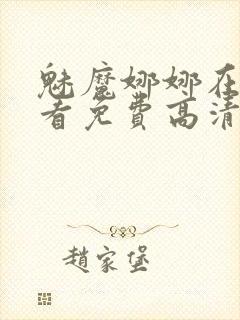 魅魔娜娜在
看免费高清
趙家堡